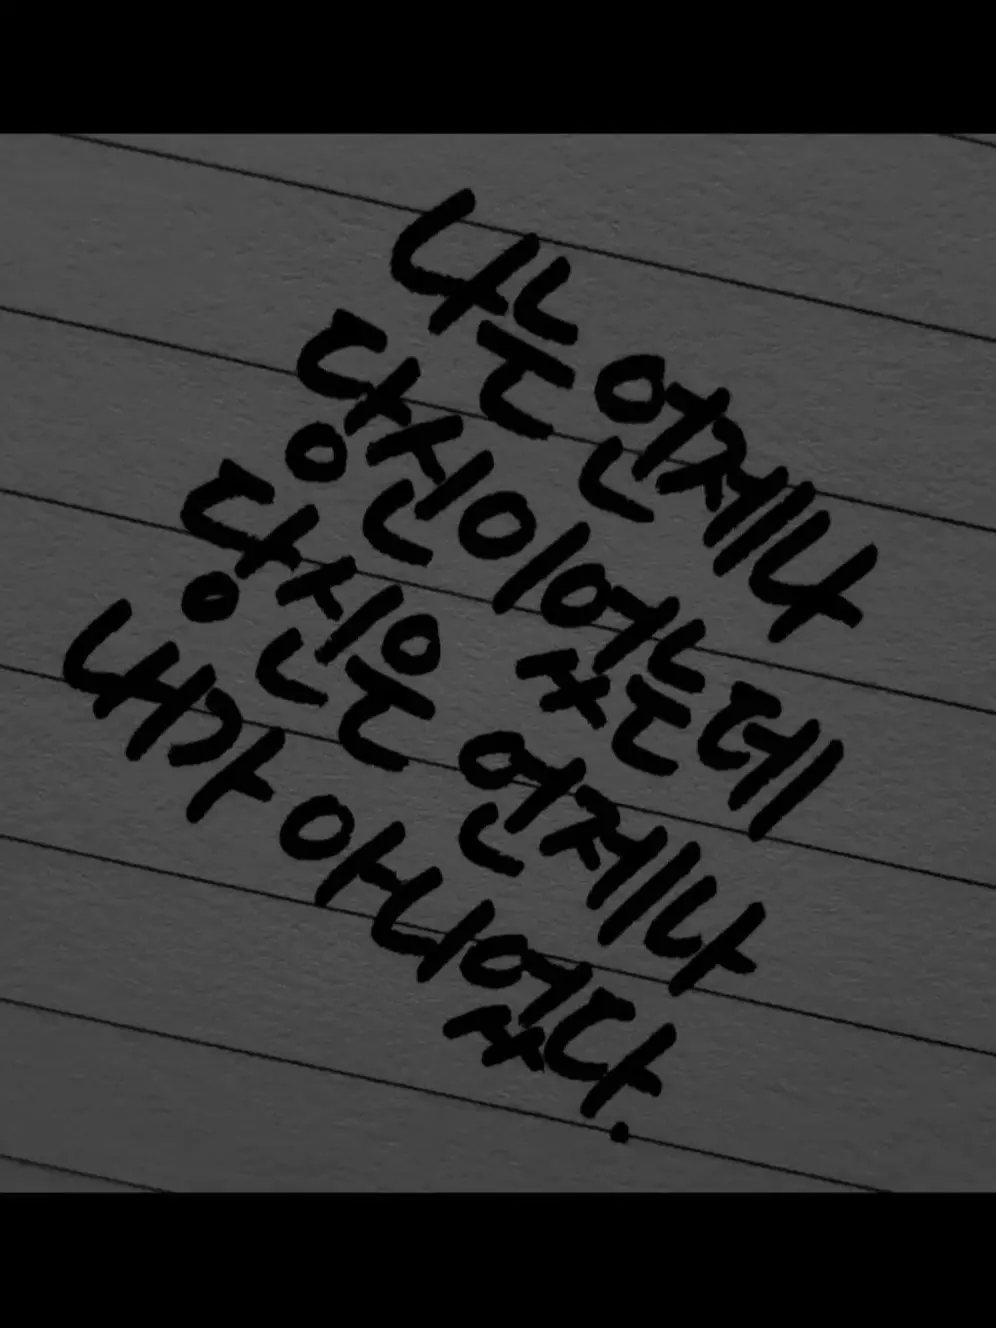 나는 언제나
당신이었는데
당신은 언제나
내가 아니었다.